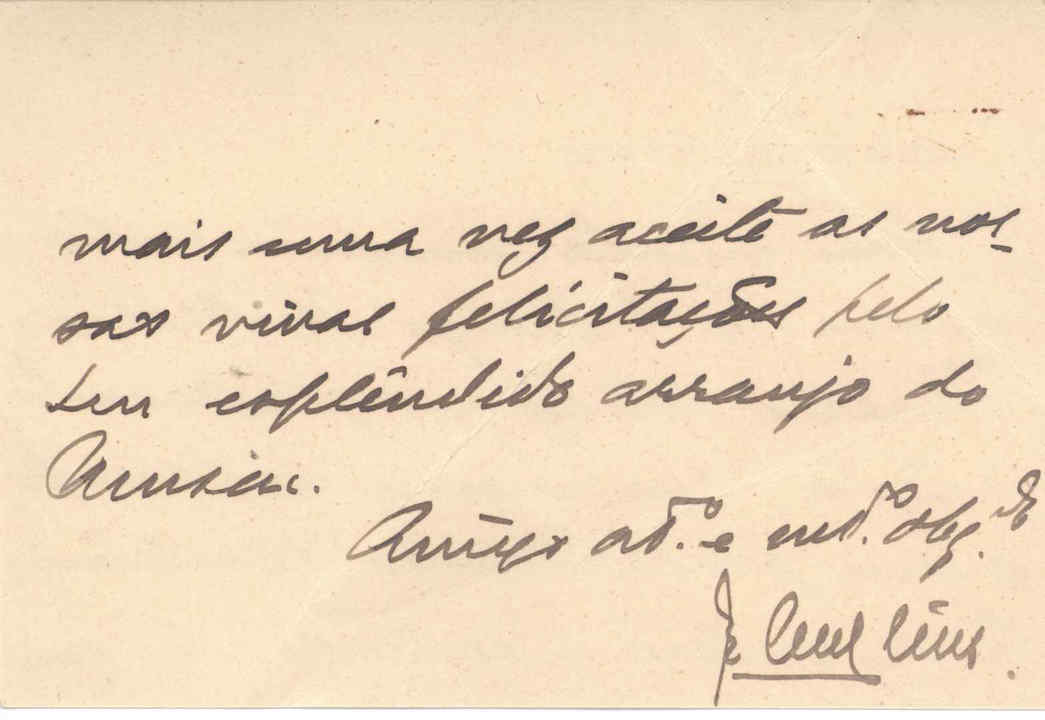 mais uma vez aceite as nos-
sas vivas felicitações pelo
seu esplêndido arranjo do
Museu.
Amigo at.º e mt.º obg.do